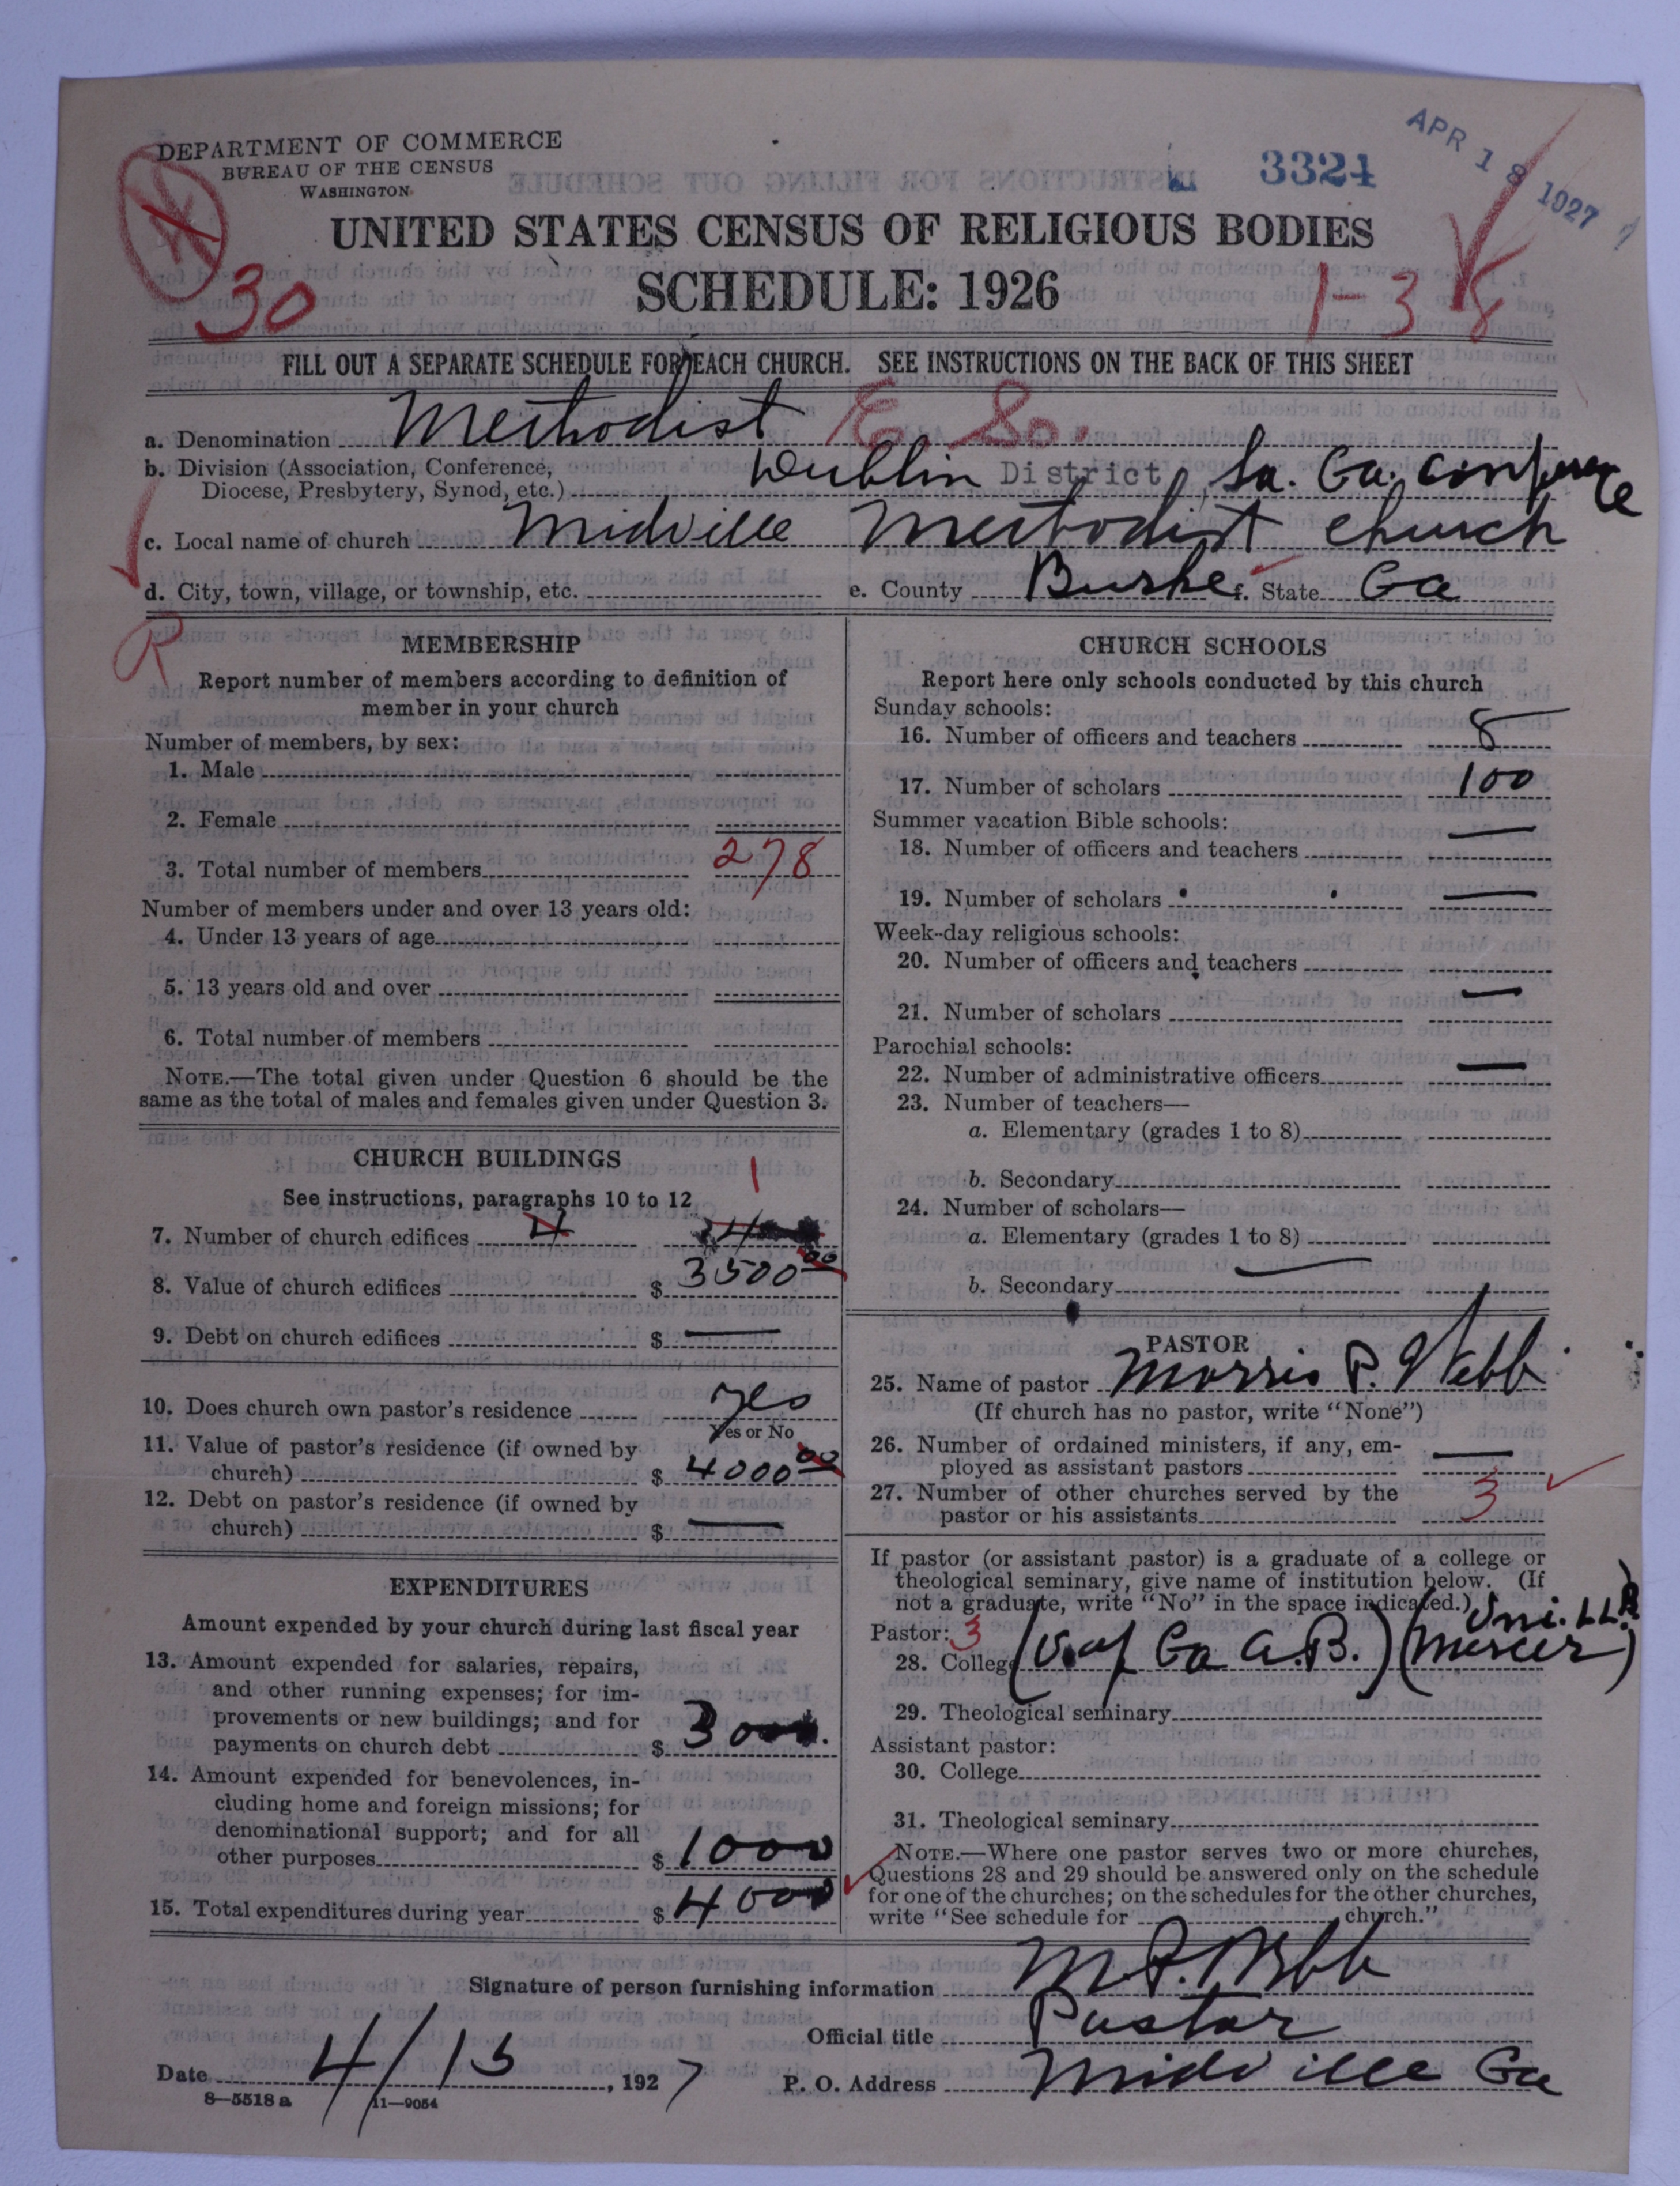 DEPARTMENT OF COMMERCE
BUREAU OF THE CENSUS
WASHINGTON
3324
APR 18 1927
UNITED STATES CENSUS OF RELIGIOUS BODIES
SCHEDULE: 1926
30
1-38
FILL OUT A SEPARATE SCHEDULE FOR EACH CHURCH. SEE INSTRUCTIONS ON THE BACK OF THIS SHEET
a. Denomination Methodist E. So.
b. Division (Association, Conference,
Diocese, Presbytery, Synod, etc.) Dublin District, So. Ga. Conference
c. Local name of church Midville Methodist Church
d. City, town, village, or township, etc. e. County Burke f. State Ga
R
MEMBERSHIP
Report number of members according to definition of
member in your church
Number of members, by sex:
1. Male
2. Female
3. Total number of members 278
Number of members under and over 13 years old:
4. Under 13 years of age
5. 13 years old and over
6. Total number of members
NOTE.—The total given under Question 6 should be the
same as the total of males and females given under Question 3.
CHURCH BUILDINGS
1
See instructions, paragraphs 10 to 12
7. Number of church edifices 4 4
8. Value of church edifices $ 3500 00
9. Debt on church edifices $ —
10. Does church own pastor's residence yes
Yes or No
11. Value of pastor's residence (if owned by
church) $ 4000 00
12. Debt on pastor's residence (if owned by
church) $ —
EXPENDITURES
Amount expended by your church during last fiscal year
13. Amount expended for salaries, repairs,
and other running expenses; for im-
provements or new buildings; and for
payments on church debt $ 3000.
14. Amount expended for benevolences, in-
cluding home and foreign missions; for
denominational support; and for all
other purposes $ 1000
15. Total expenditures during year $ 4000
CHURCH SCHOOLS
Report here only schools conducted by this church
Sunday schools:
16. Number of officers and teachers 8
17. Number of scholars 100
Summer vacation Bible schools:
18. Number of officers and teachers —
19. Number of scholars —
Week-day religious schools:
20. Number of officers and teachers
21. Number of scholars —
Parochial schools:
22. Number of administrative officers —
23. Number of teachers—
a. Elementary (grades 1 to 8)
b. Secondary
24. Number of scholars—
a. Elementary (grades 1 to 8)
b. Secondary —
PASTOR
25. Name of pastor Morris P. Webb
(If church has no pastor, write "None")
26. Number of ordained ministers, if any, em-
ployed as assistant pastors —
27. Number of other churches served by the
pastor or his assistants 3
If pastor (or assistant pastor) is a graduate of a college or
theological seminary, give name of institution below. (If
not a graduate, write "No" in the space indicated.)
Pastor: 3 Uni. LLB
28. College (U. of Ga A.B.) (Mercer)
29. Theological seminary
Assistant pastor:
30. College
31. Theological seminary
NOTE.—Where one pastor serves two or more churches,
Questions 28 and 29 should be answered only on the schedule
for one of the churches; on the schedules for the other churches,
write "See schedule for church."
Signature of person furnishing information M P. Webb
Official title Pastor
Date 4/15, 1927 P. O. Address Midville Ga
8—5518 a 11—9054